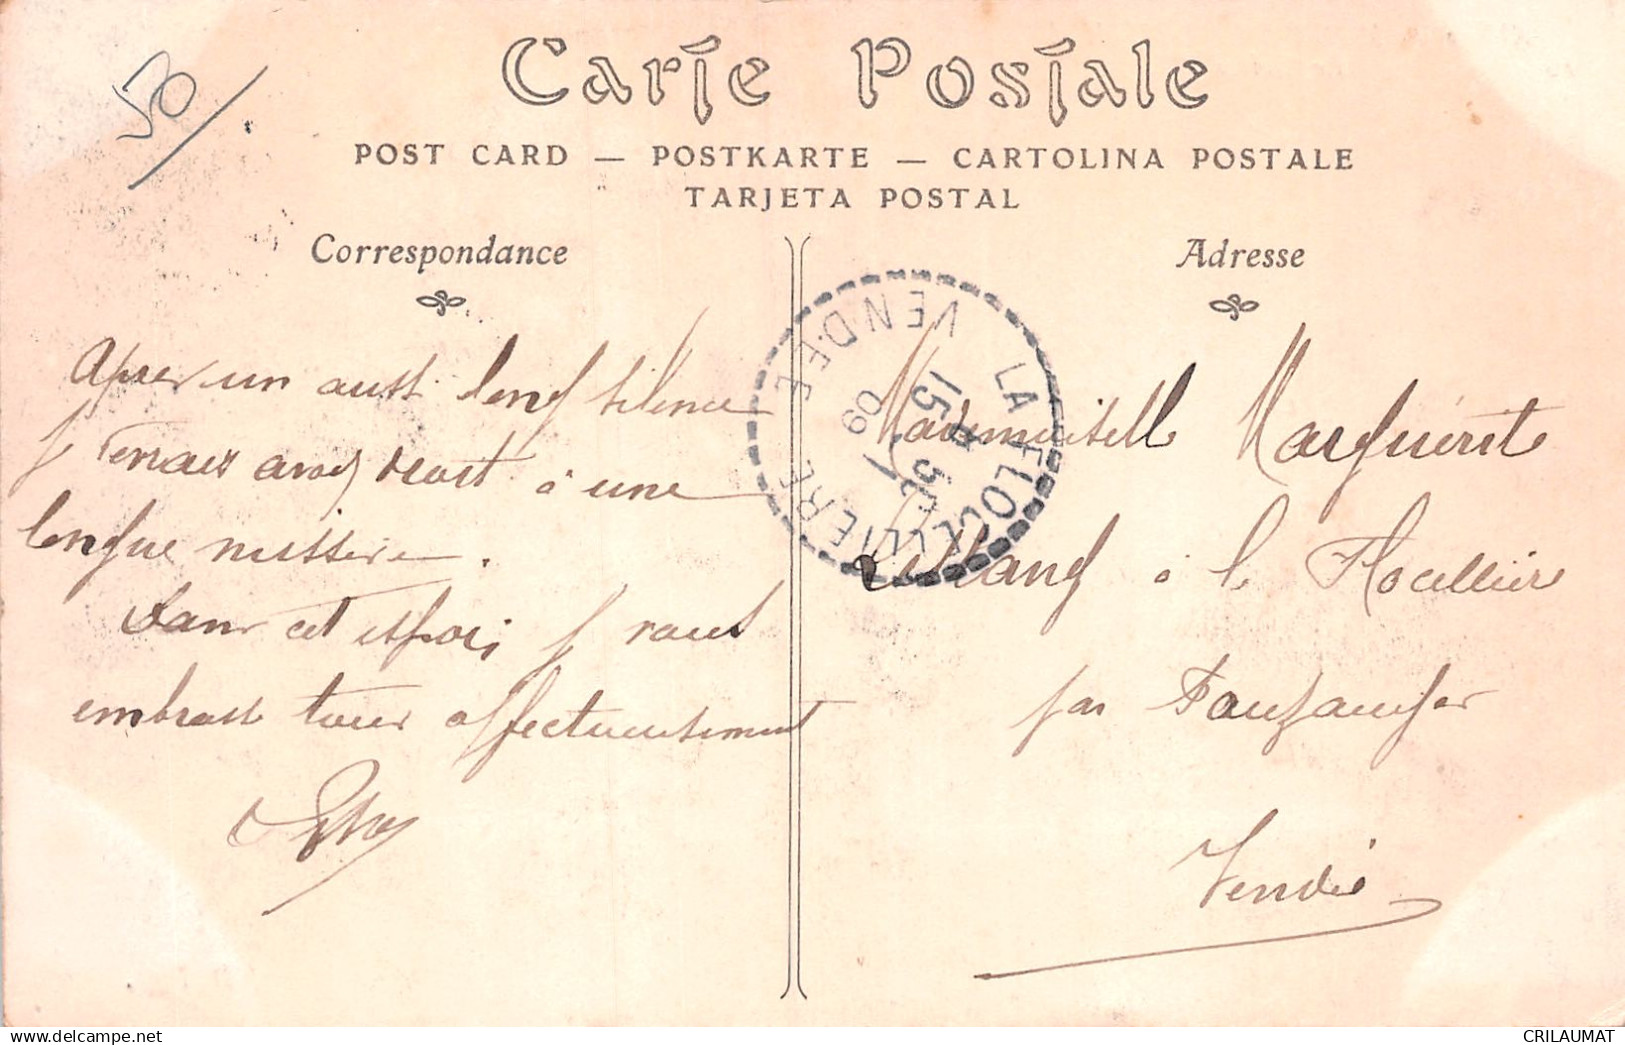 50
Carte Postale
POST CARD — POSTKARTE — CARTOLINA POSTALE
TARJETA POSTAL
Correspondance
Adresse
Apres un aussi long silence
j avoy droit à une
longue missive.
Dans cet espoir j vous
embrasse tous affectueusement
LA FLOCELLIERE
VENDEE
15 50
09
Mademoiselle Marguerite
à la Flocellière
par Pouzauges
Vendée
www.delcampe.net
CRILAUMAT